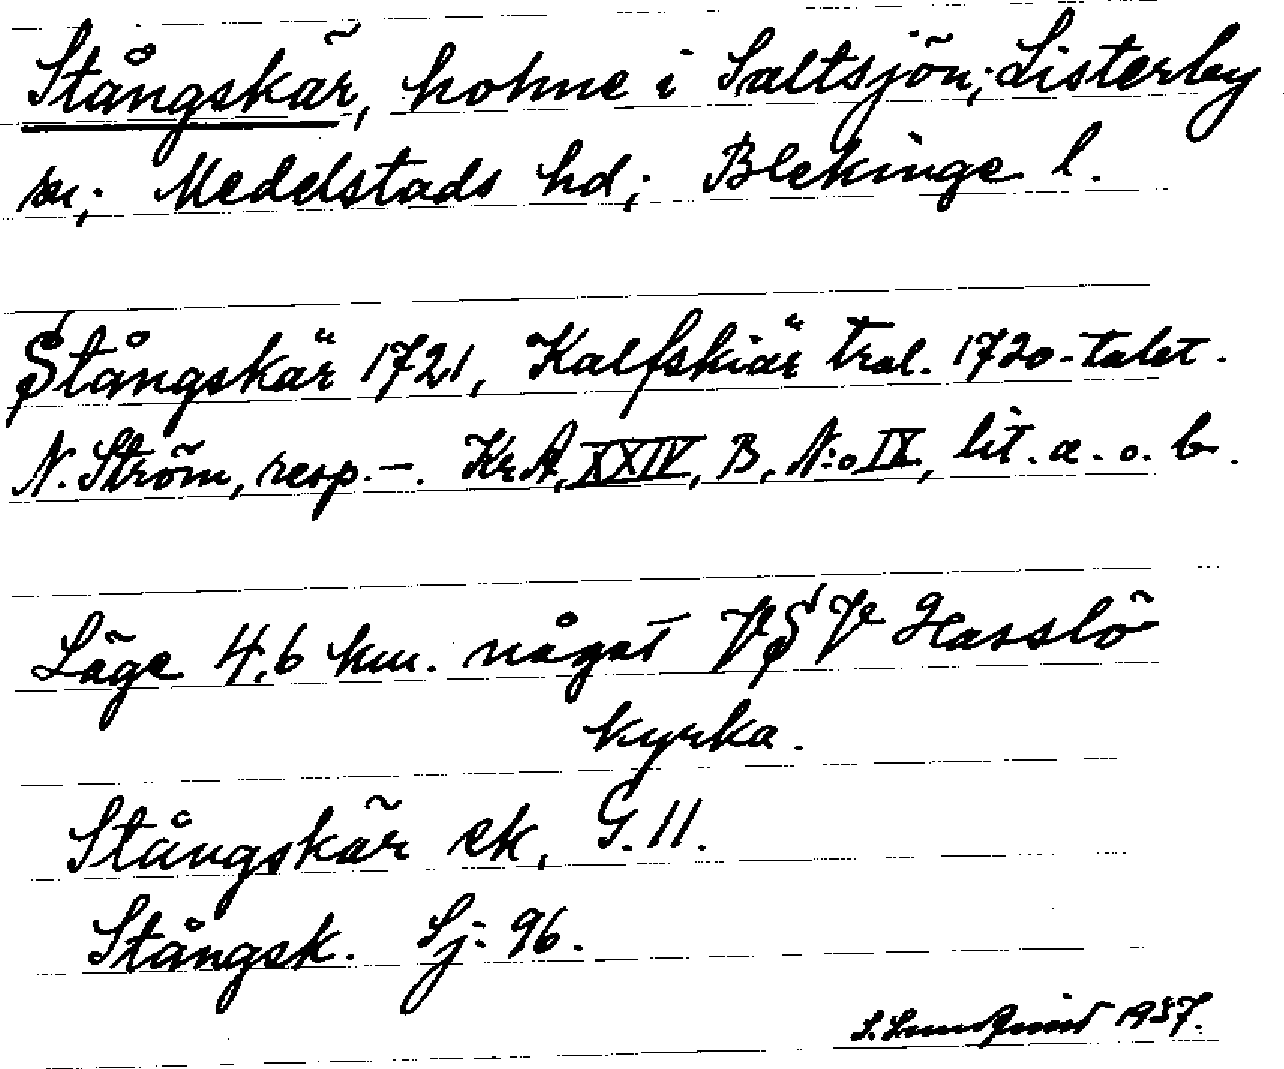 Stångskär, holme i Saltsjön; Listerby
sn; Medelstads hd; Blekinge l.
Stångskär 1721, Kalfskiär trol. 1720-talet.
N. Ström, resp. –. Kr A, XXIV, B, N:o IX, lit. a. o. b.
Läge 4,6 km. något VSV Hasslö
kyrka.
Stångskär ek, G. 11.
Stångsk. Sj: 96.
1937.